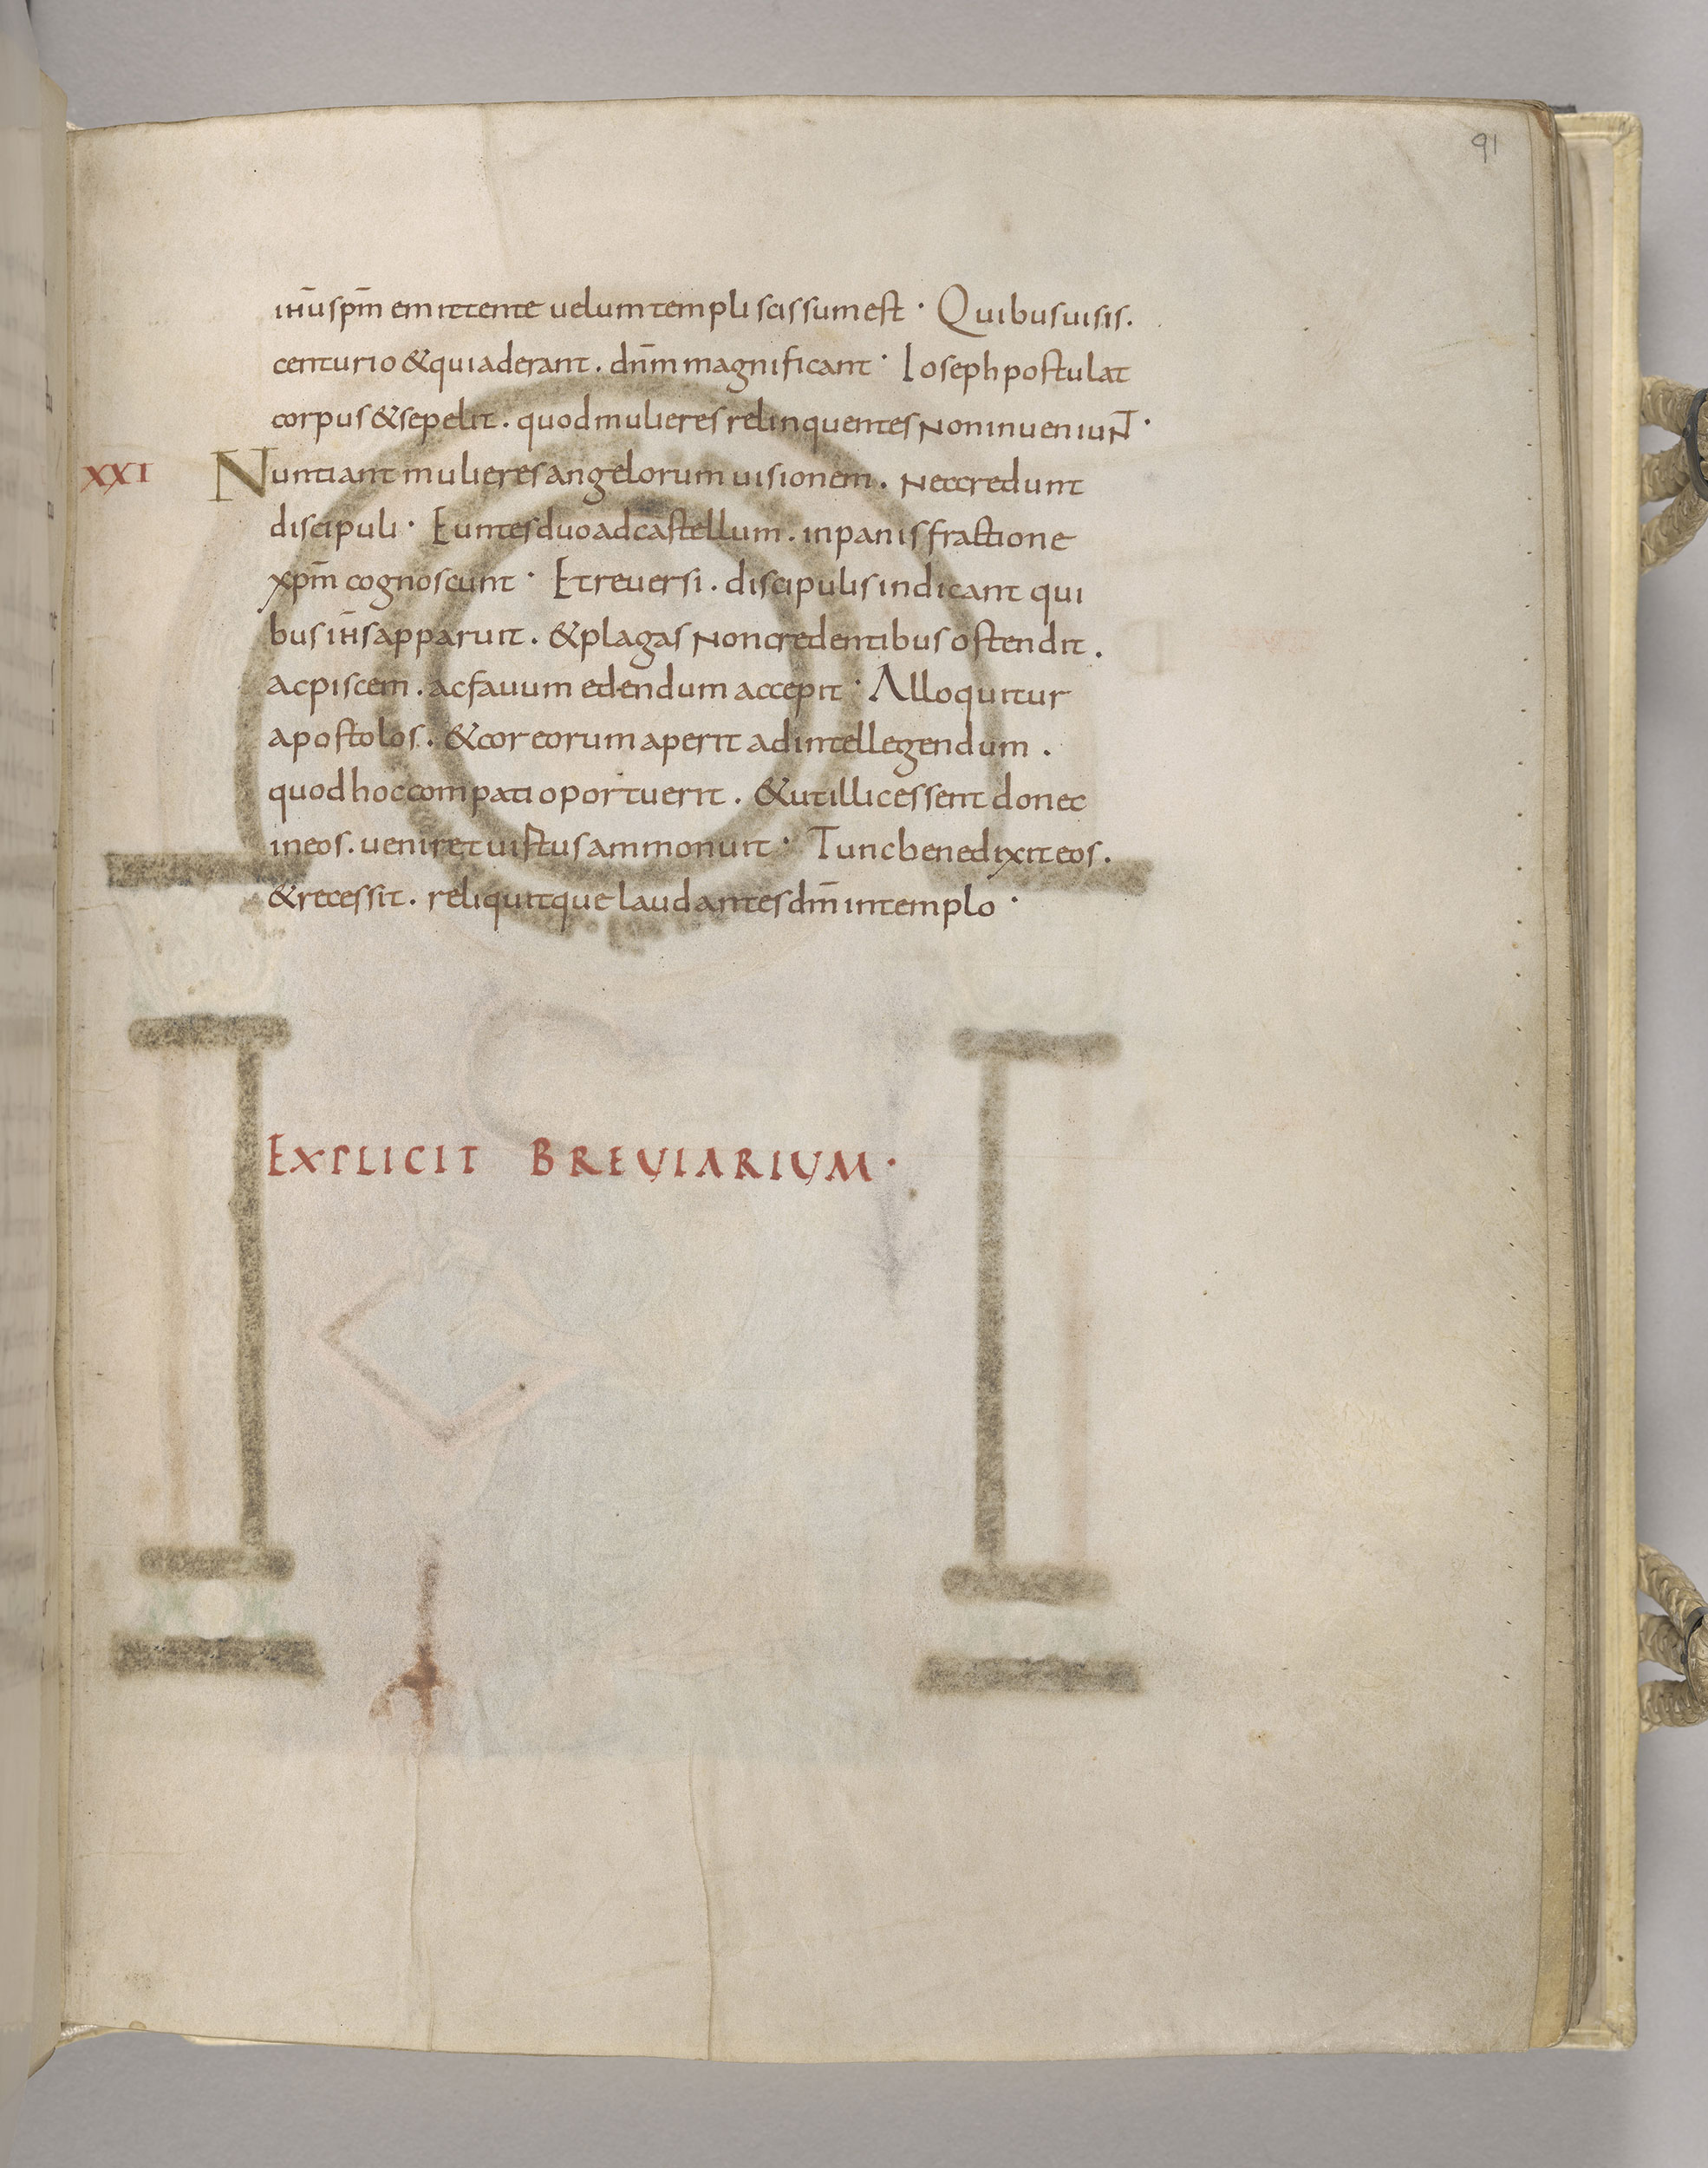 91
ihu spm emittente uelum templi scissum est · Quibus uisis.
centurio & qui aderant . dnm magnificant · Ioseph postulat
corpus & sepelit . quod mulieres relinquentes non inueniunt ·
XXI Nuntiant mulieres angelorum uisionem . nec credunt
discipuli · Euntes duo ad castellum . in panis fractione
xpm cognoscunt · Et reuersi . discipulis indicant qui
bus ihs apparuit . & plagas non credentibus ostendit .
ac piscem . ac fauum edendum accepit · Alloquitur
apostolos . & cor eorum aperit ad intellegendum .
quod hoc eom pati oportuerit . & ut illic essent donec
in eos . ueniret uistus ammonuit · Tunc benedixit eos .
& recessit . reliquitque laudantes dm in templo ·
EXPLICIT BREUIARIUM ·